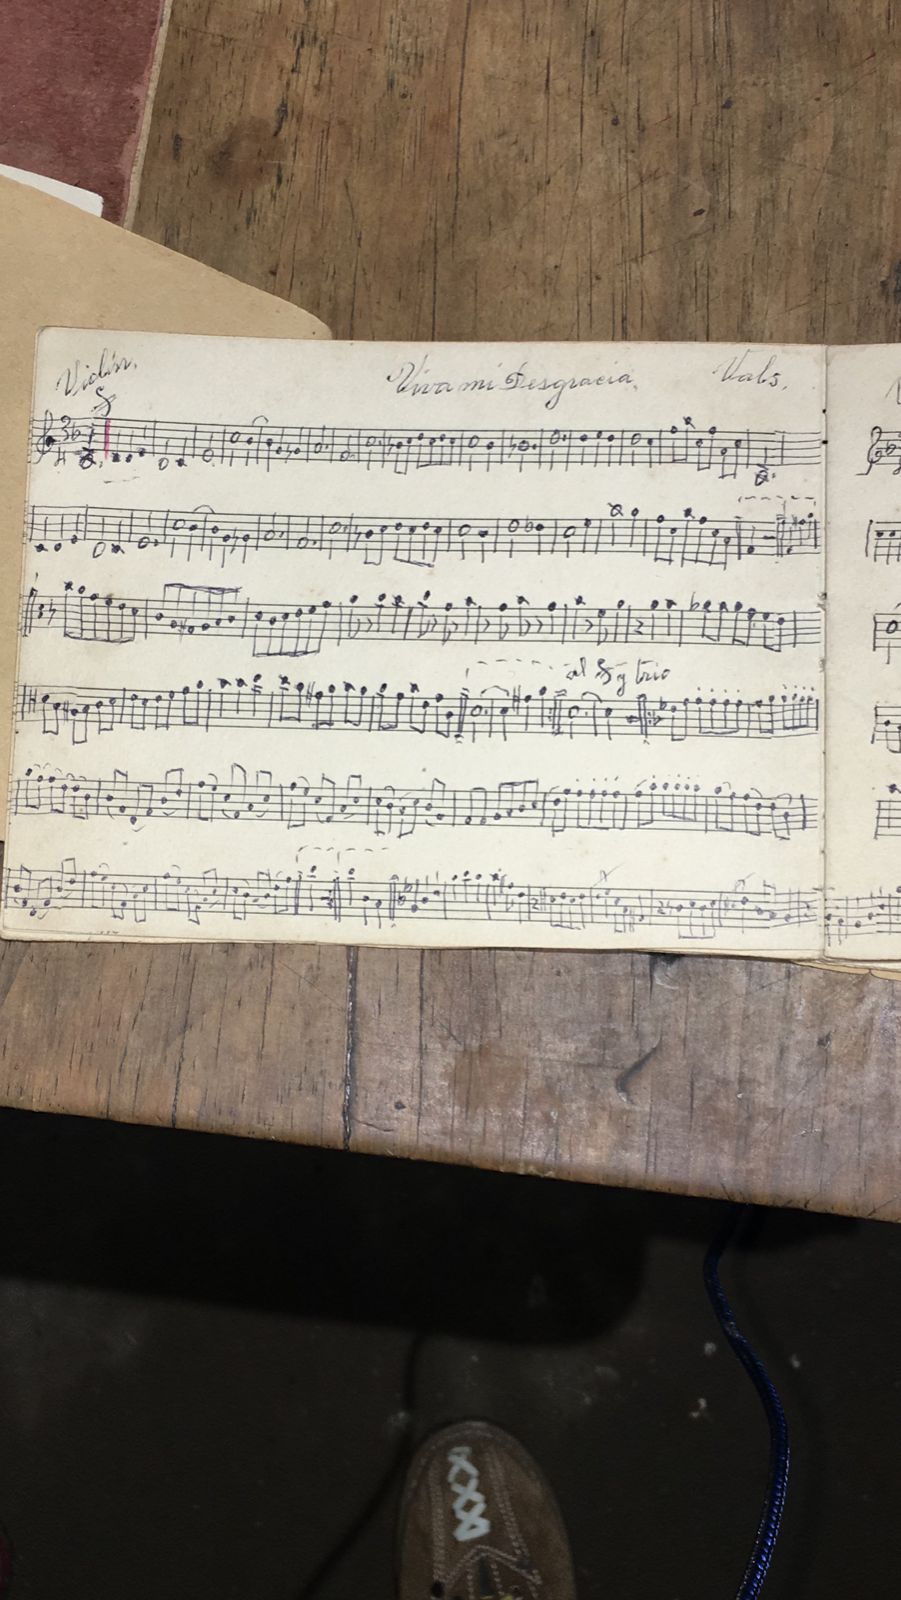 Violin. Viva mi Desgracia. Vals.
al 𝄋 y trio